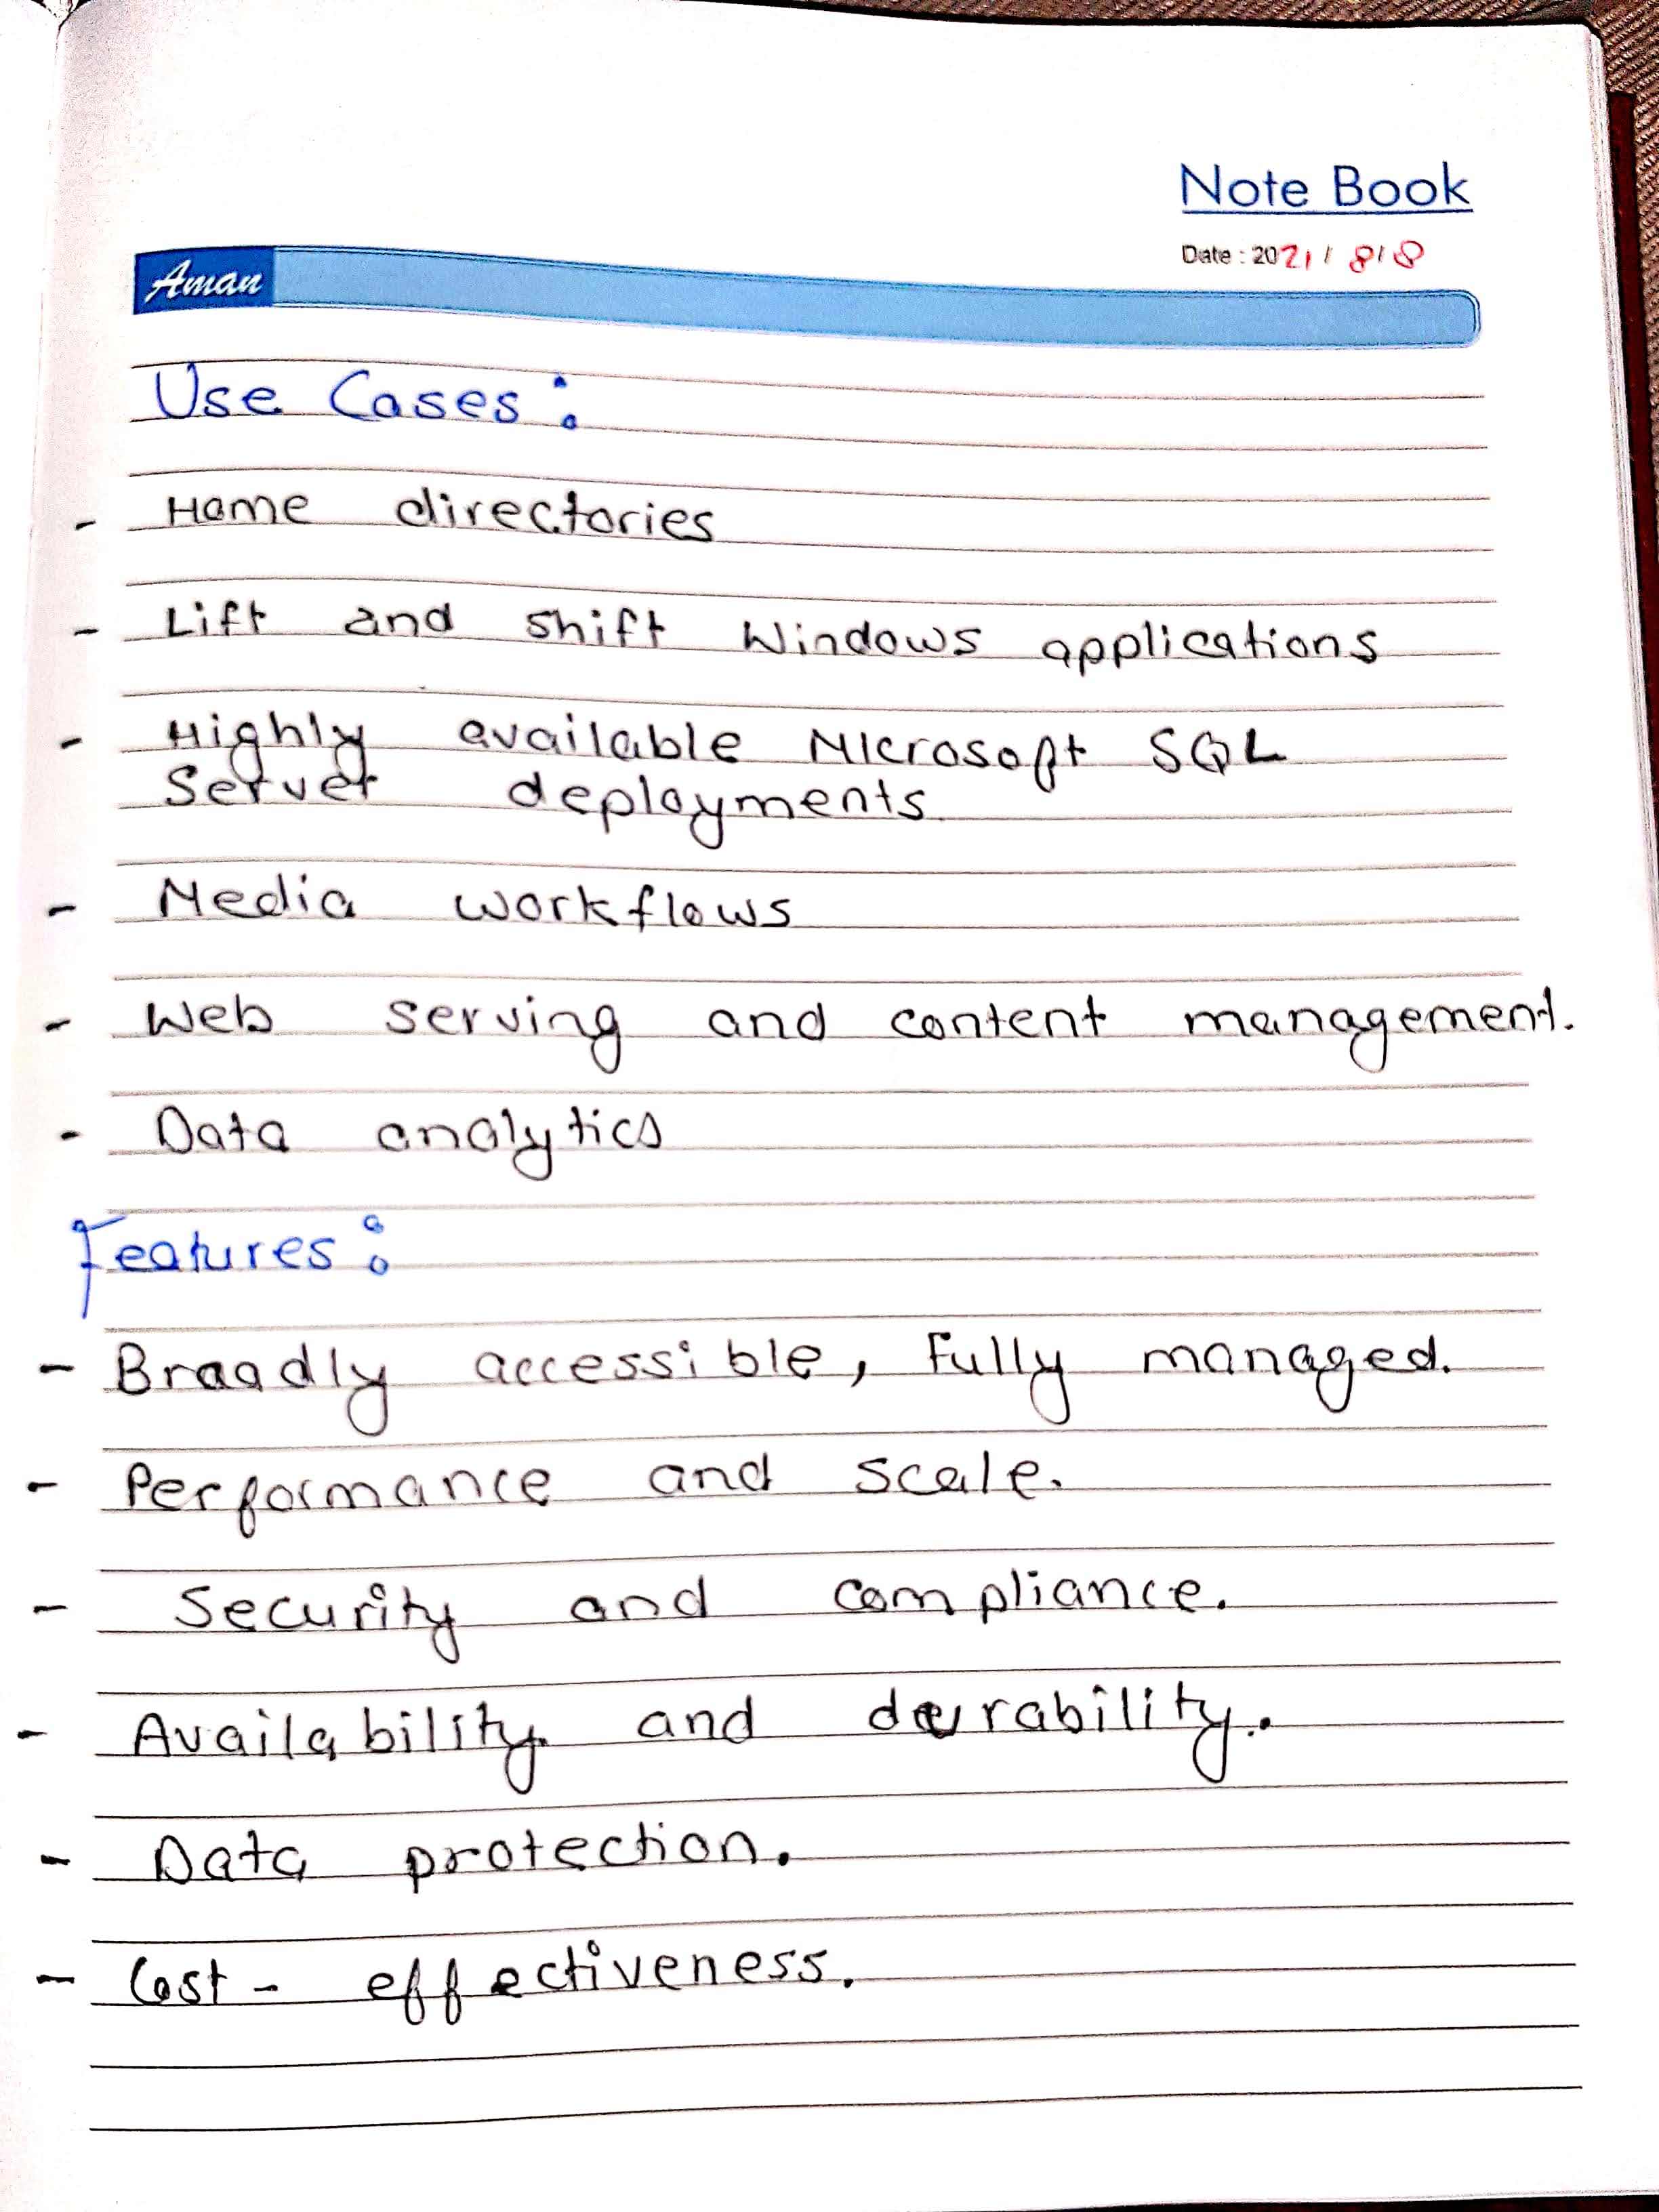 Note Book
Date : 2021 / 8 / 8
Aman
Use Cases :
- Home directories
- Lift and shift Windows applications
- Highly available Microsoft SQL
Server deployments
- Media workflows
- Web serving and content management.
- Data analytics
Features :
- Broadly accessible, Fully managed.
- Performance and scale.
- Security and compliance.
- Availability and durability.
- Data protection.
- Cost - effectiveness.